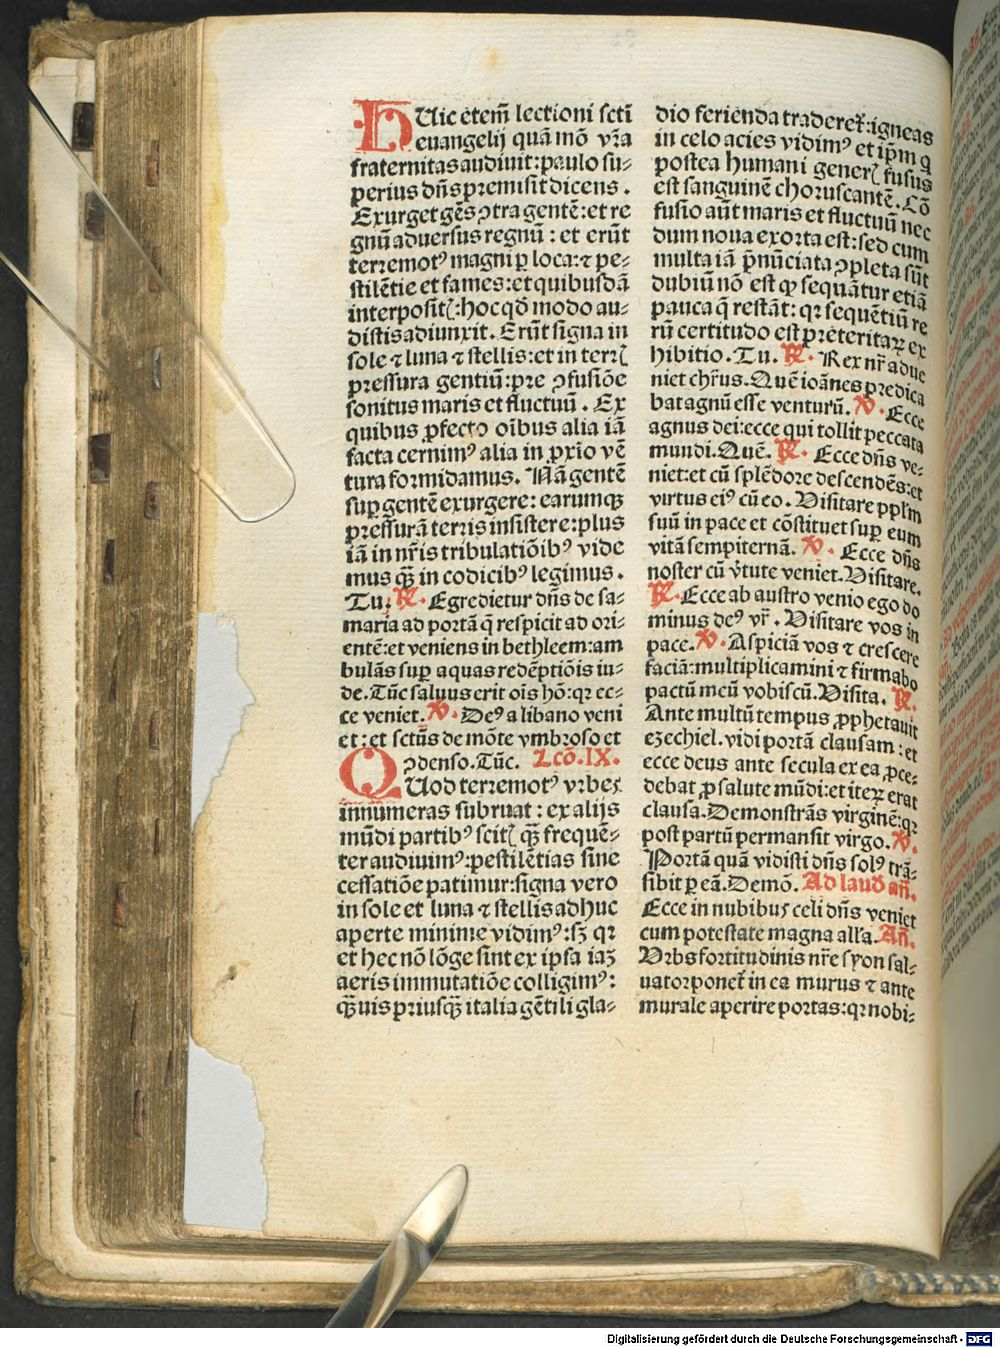 HUic etem̄ lectioni sctī
euangelij quā mō vr̄a
fraternitas audiuit: paulo su⸗
perius dn̄s premisit dicens.
Exurget gēs ꝯtra gentē: et re
gnū aduersus regnū: et erūt
terremotꝰ magni ꝑ loca: ⁊ pe⸗
stilētie et fames: et quibusdā
interpositꝭ: hoc qd̄ modo au⸗
distis adiunxit. Erūt signa in
sole ⁊ luna ⁊ stellis: et in terrꝭ
pressura gentiū: pre ꝯfusiōe
sonitus maris et fluctuū. Ex
quibus ꝓfecto oībus alia iā
facta cernimꝰ alia in ꝓxio vē
tura formidamus. Nā gentē
suꝑ gentē exurgere: earumqꝫ
pressurā terris insistere: plus
iā in nr̄is tribulatiōibꝰ vide
mus qꝫ̄ in codicibꝰ legimus.
Tu. ℟. Egredietur dn̄s de sa⸗
maria ad portā q̄ respicit ad ori⸗
entē: et veniens in bethleem: am
bulās suꝑ aquas redēptiōis iu⸗
de. Tūc saluus erit oīs hō: qꝛ ec⸗
ce veniet. ℣. Deꝰ a libano veni
et: et sctūs de mōte vmbroso et
ꝯdenso. Tūc. Lcō. IX.
QUod terremotꝰ vrbes
innumeras subruat: ex alijs
mūdi partibꝰ scitꝭ qꝫ̄ frequē⸗
ter audiuimꝰ: pestilētias sine
cessatiōe patimur: signa vero
in sole et luna ⁊ stellis adhuc
aperte minime vidimꝰ: sꝫ qꝛ
et hec nō lōge sint ex ipsa iaꝫ
aeris immutatiōe colligimꝰ:
qꝫ̄uis priusqꝫ̄ italia gētili gla⸗
dio ferienda traderet̄: igneas
in celo acies vidimꝰ et ip̄m q̄
postea humani generꝭ fusus
est sanguinē choruscantē. Cō
fusio aūt maris et fluctuū nec
dum noua exorta est: sed cum
multa iā p̄nūciata ꝯpleta sūt
dubiū nō est ꝙ sequātur etiā
pauca q̄ restāt: qꝛ sequētiū re
rū certitudo est preteritaꝝ ex
hibitio. Tu. ℟. Rex nr̄ adue
niet chr̄us. Quē ioānes predica
bat agnū esse venturū. ℣. Ecce
agnus dei: ecce qui tollit peccata
mundi. Quē. ℟. Ecce dn̄s ve⸗
niet: et cū splēdore descendēs: et
virtus eiꝰ cū eo. Visitare ppl̄m
suū in pace et cōstituet suꝑ eum
vitā sempiternā. ℣. Ecce dn̄s
noster cū v̄tute veniet. Visitare.
℟. Ecce ab austro venio ego do
minus deꝰ vr̄. Visitare vos in
pace. ℣. Aspiciā vos ⁊ crescere
faciā: multiplicamini ⁊ firmabo
pactū meū vobiscū. Visita. ℟.
Ante multū tempus ꝓphetauit
ezechiel. vidi portā clausam: et
ecce deus ante secula ex ea ꝓce⸗
debat ꝓ salute mūdi: et iteꝝ erat
clausa. Demonstrās virginē: qꝛ
post partū permansit virgo. ℣.
Portā quā vidisti dn̄s solꝰ trā⸗
sibit ꝑ eā. Demō. Ad laud̄ an̄.
Ecce in nubibus celi dn̄s veniet
cum potestate magna all'a. An̄.
Vrbs fortitudinis nr̄e syon sal⸗
uator ponet̄ in ea murus ⁊ ante
murale aperire portas: qꝛ nobi⸗
Digitalisierung gefördert durch die Deutsche Forschungsgemeinschaft - DFG